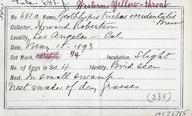 Western Yellow-throat
No. 681a Name Geothlypis trichas occidentalis
Brew
Collector Howard Robertson
Locality Los Angeles - Cal
Date May 18th 1893
Set Mark 4/4 Incubation Slight
No. of Eggs 4 Identity Bird seen
Nest in small swamp
Nest made of dry grasses
(335)